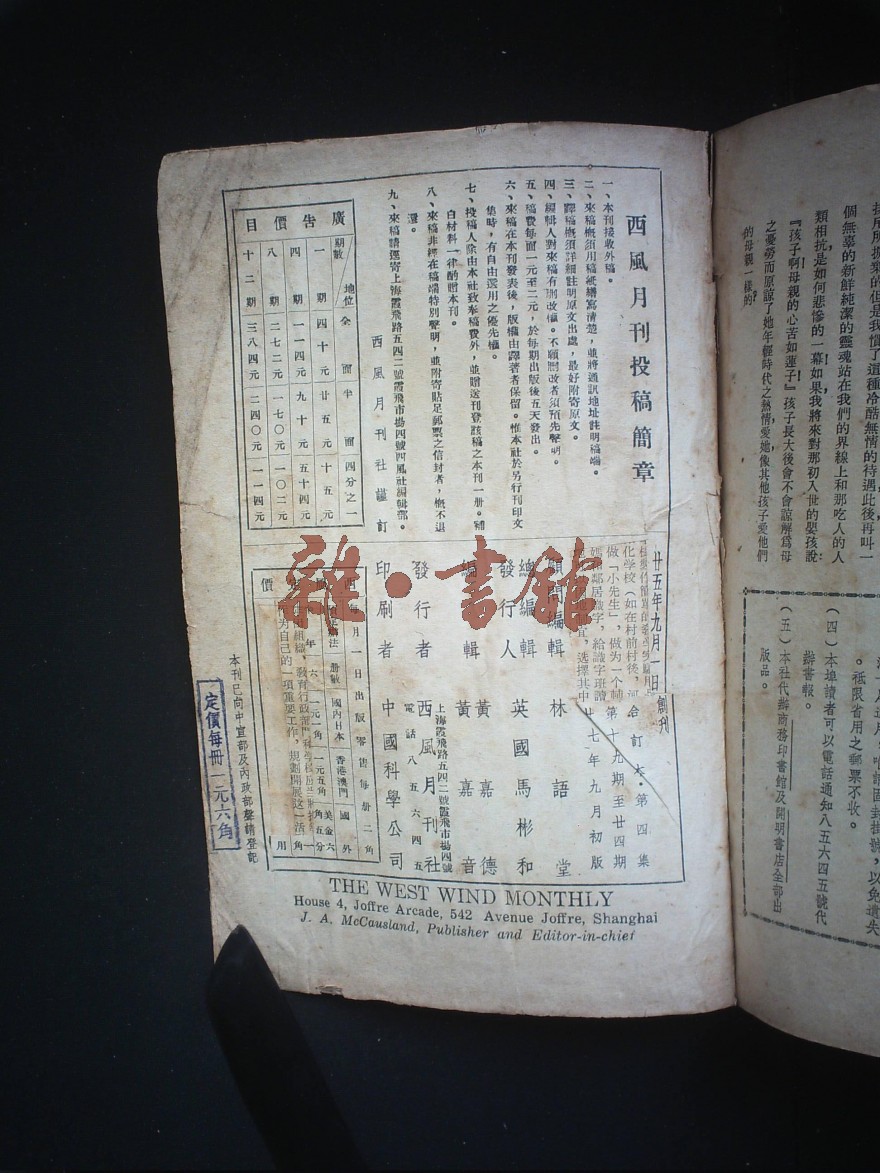 西風月刊投稿簡章
一、本刊接收外稿。
二、來稿概須用稿紙繕寫清楚，並將通訊地址註明稿端。
三、譯稿概須詳細註明原文出處，最好附寄原文。
四、編輯人對來稿有刪改權。不願刪改者須預先聲明。
五、稿費每面一元至二元，於每期出版後五天發出。
六、來稿在本刊發表後，版權由譯著者保留。惟本社於另行刊印文
集時，有自由選用之優先權。
七、投稿人除由本社致奉稿費外，並贈送刊登該稿之本刊一册。補
白材料一律酌贈本刊。
八、來稿非經在稿端特別聲明，並附寄貼足郵票之信封者，概不退
還。
九、來稿請逕寄上海霞飛路五四二號霞飛市場四號西風社編輯部。
西風月刊社謹訂
廣告價目
期數 地位 全面 半面 四分之一
一期 四十元 廿五元 十五元
四期 一一四元 九十元 五十四元
八期 二七二元 一七〇元 一〇二元
十二期 三八四元 二四〇元 一一四元
廿五年九月一日創刊
合訂本·第四集
第十九期至廿四期
廿七年九月初版
顧問編輯 林語堂
總編輯
發行人 英國馬彬和
編輯 黃嘉德
黃嘉音
發行者 西風月刊社
上海霞飛路五四二號霞飛市場四號
電話八五六四五
印刷者 中國科學公司
化学校（如在村前村後，
做「小先生」，做为一个辅
鄰居識字，給識字班讀
宜，选擇其中
每月一日出版零售每册二角
册數 國內日本 香港澳門 國外
价
为自己的一項重要工作，规劃開展这一活
本刊已向中宣部及內政部聲請登記
定價每冊一元六角
THE WEST WIND MONTHLY
House 4, Joffre Arcade, 542 Avenue Joffre, Shanghai
J. A. McCausland, Publisher and Editor-in-chief
雜·書館
個無辜的新鮮純潔的靈魂站在我們的界線上和那吃人的人
類相抗是如何悲慘的一幕！如果我將來對那初入世的嬰孩說：
『孩子啊母親的心苦如蓮子！』孩子長大後會不會諒解爲母
之憂勞而原諒了她年輕時代之熱情愛她像其他孩子愛他們
的母親一樣的
。祗限省用之郵票不收。
（四）本埠讀者可以電話通知八五六四五號代
辦書報。
（五）本社代辦商務印書館及開明書店全部出
版品。